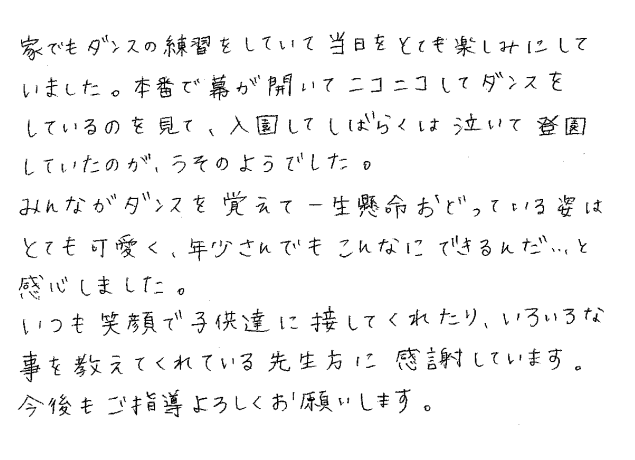 家でもダンスの練習をしていて当日をとても楽しみにして
いました。本番で幕が開いてニコニコしてダンスを
しているのを見て、入園してしばらくは泣いて登園
していたのが、うそのようでした。
みんながダンスを覚えて一生懸命おどっている姿は
とても可愛く、年少さんでもこんなにできるんだ…と
感心しました。
いつも笑顔で子供達に接してくれたり、いろいろな
事を教えてくれている先生方に感謝しています。
今後もご指導よろしくお願いします。